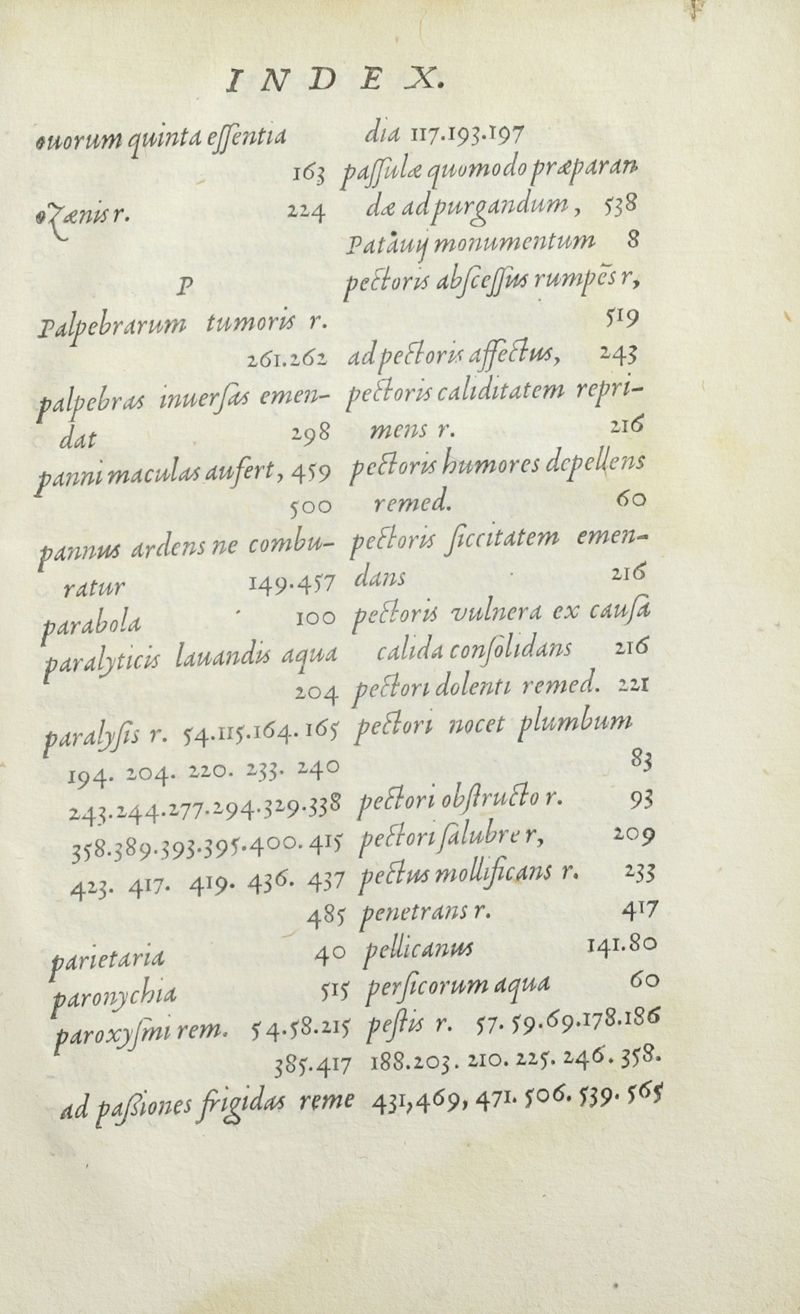 INDEX.
ouorum quinta eſſentia
163
oZænis r. 224
P
Palpebrarum tumoris r.
261.262
palpebras inuerſas emen-
dat 298
panni maculas aufert, 459
500
pannus ardens ne combu-
ratur 149.457
parabola 100
paralyticis lauandis aqua
204
paralyſis r. 54.115.164.165
194. 204. 220. 233. 240
243.244.277.294.329.338
358.389.393.395.400.415
423. 417. 419. 436. 437
485
parietaria 40
paronychia 515
paroxyſmi rem. 54.58.215
385.417
ad paſsiones frigidas reme
dia 117.193.197
paſſulæ quomodo præparan
dæ ad purgandum, 538
Patauij monumentum 8
pectoris abſceſſus rumpēs r,
519
ad pectoris affectus, 243
pectoris caliditatem repri-
mens r. 216
pectoris humores depellens
remed. 60
pectoris ſiccitatem emen-
dans 216
pectoris vulnera ex cauſa
calida conſolidans 216
pectori dolenti remed. 221
pectori nocet plumbum
83
pectori obſtructo r. 93
pectori ſalubre r, 209
pectus mollificans r. 233
penetrans r. 417
pellicanus 141.80
perſicorum aqua 60
peſtis r. 57.59.69.178.186
188.203. 210. 225. 246. 358.
431,469, 471. 506. 539. 565